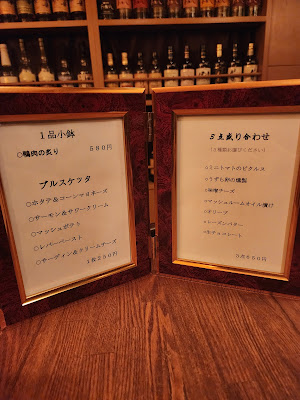 1品小鉢
○鴨肉の炙り 580円
ブルスケッタ
○ホタテ&コーンマヨネーズ
○サーモン&サワークリーム
○マッシュポテト
○レバーペースト
○サーディン&クリームチーズ
1枚250円
3点盛り合わせ
○ミニトマトのピクルス
○うずら卵の燻製
○味噌チーズ
○マッシュルームオイル漬け
○オリーブ
○レーズンバター
○生チョコレート